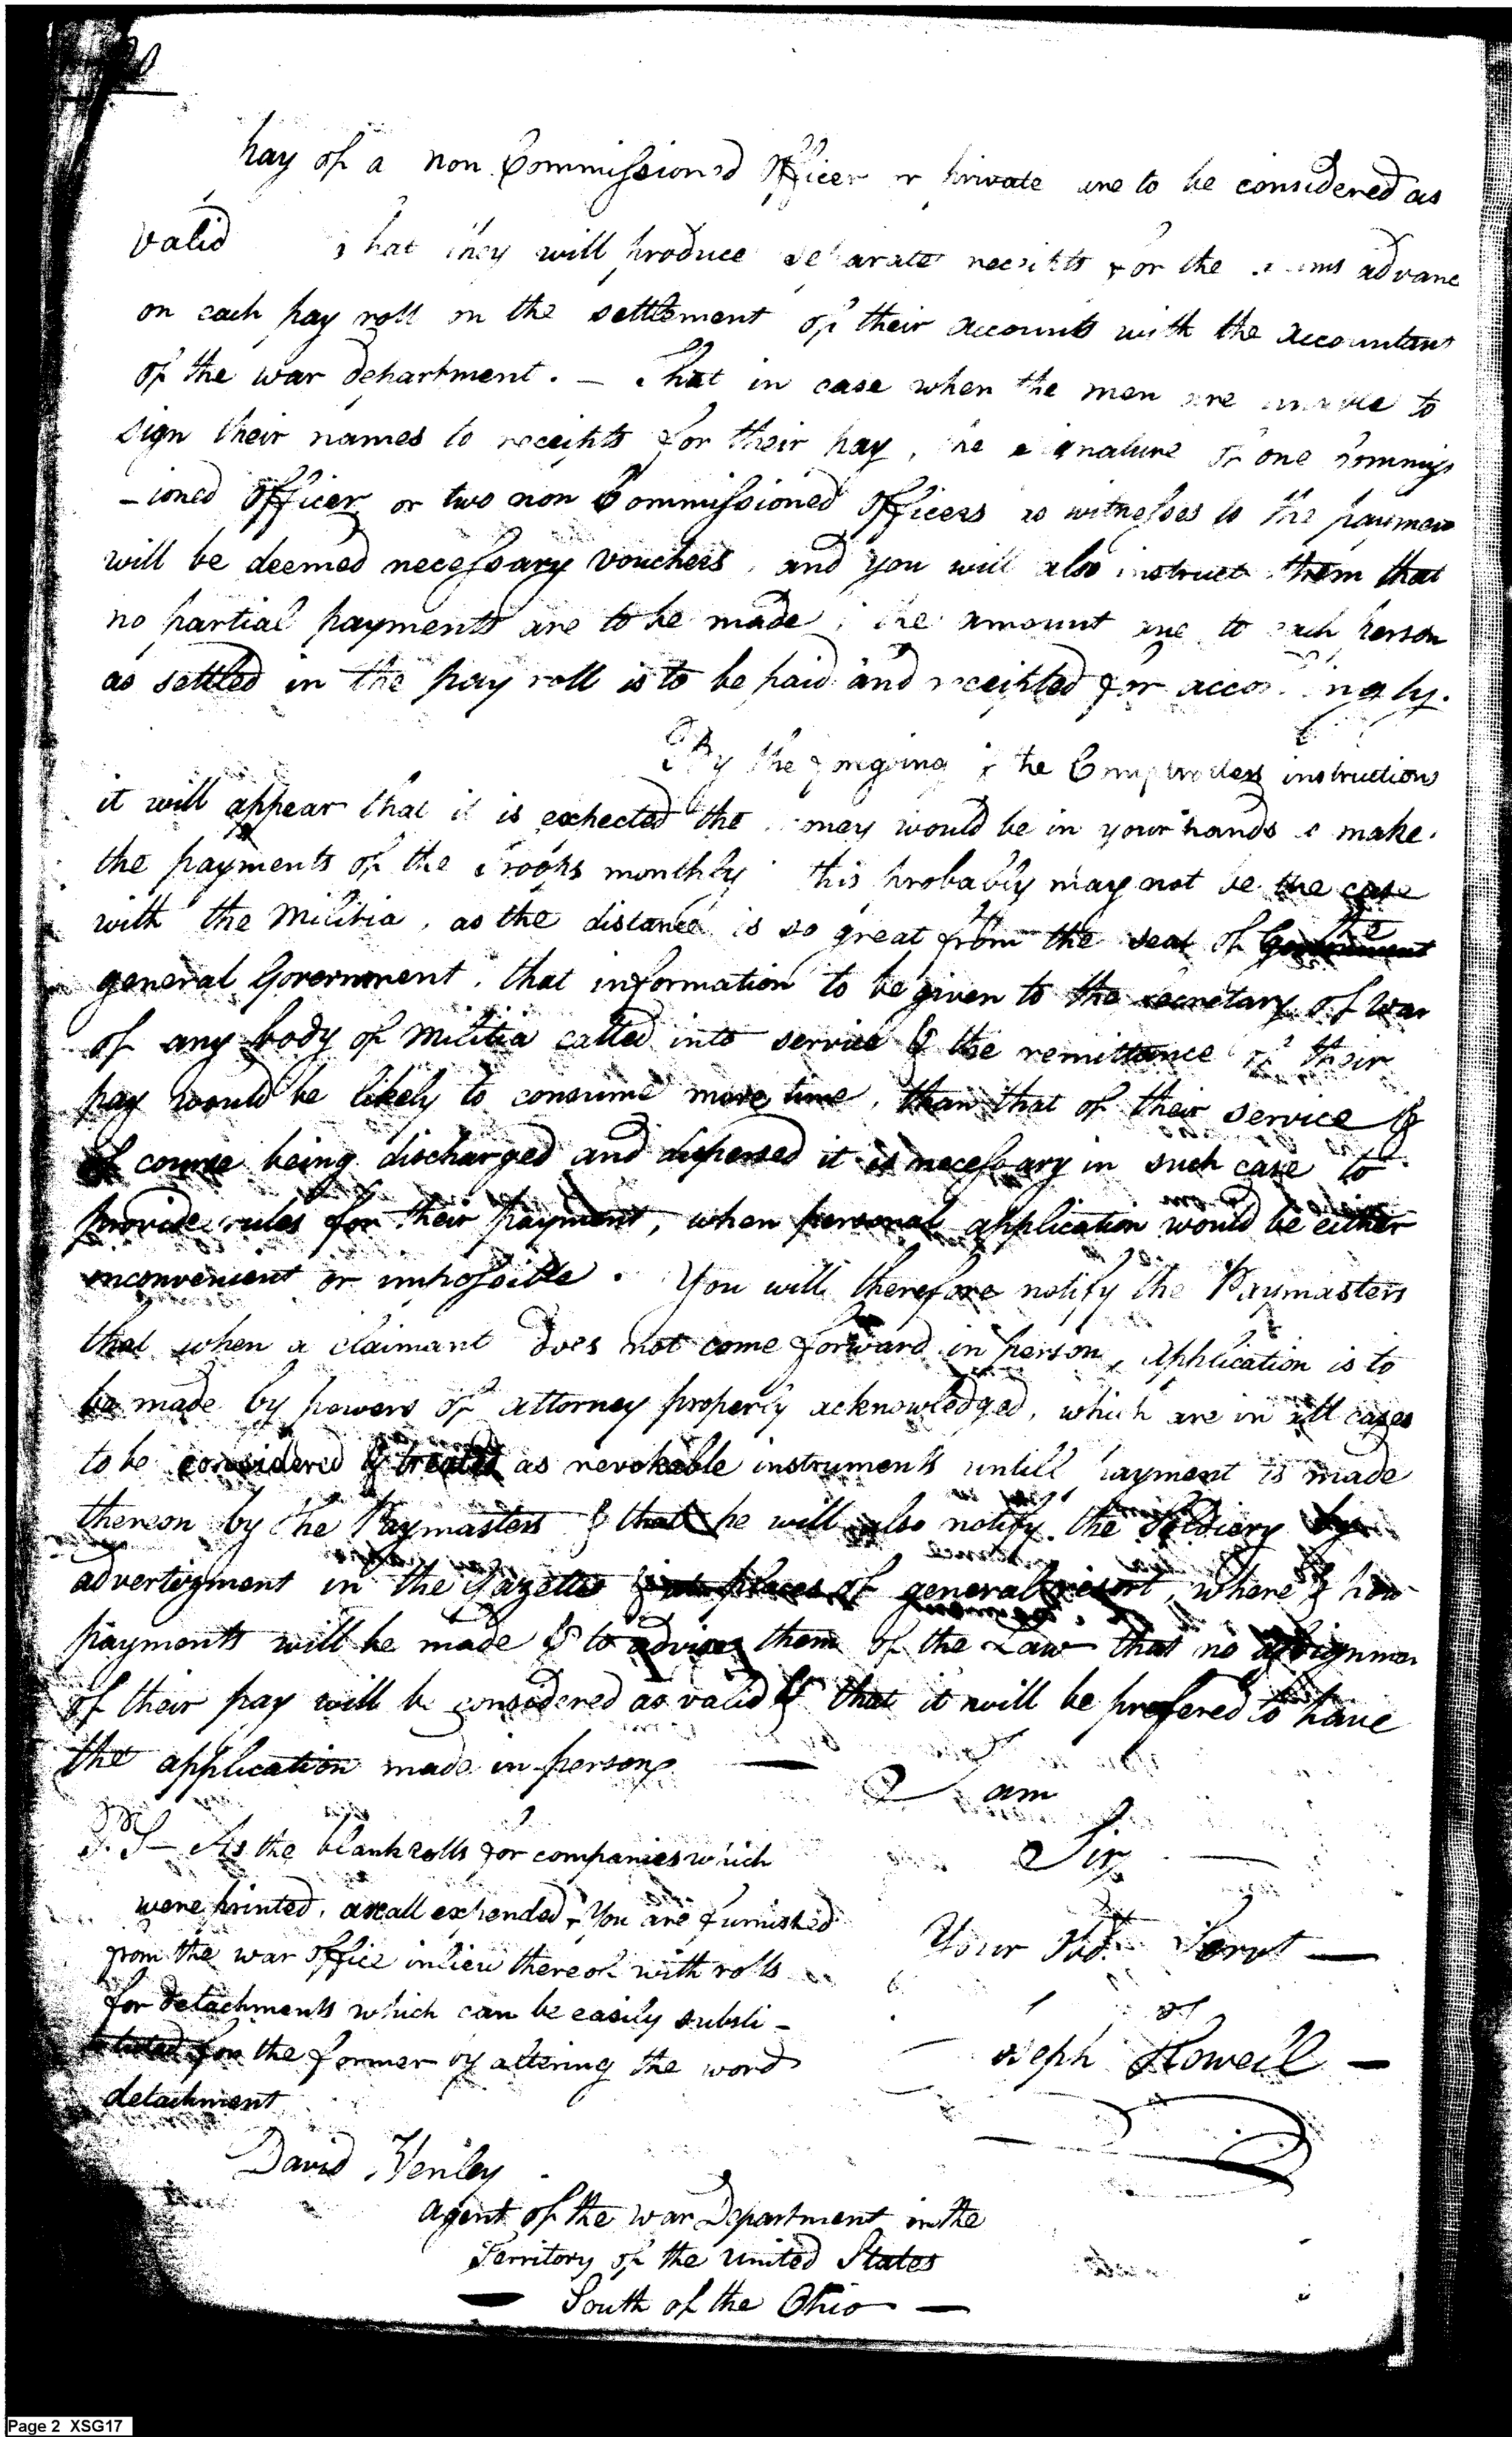 pay of a non Commissiond Officer or private are to be considered as
valid that they will produce separate receipts for the sums advanc
on each pay roll on the settlement of their accounts with the accountant
of the war department. — That in case when the men are unable to
sign their names to receipts for their pay, the signature of one Commiss
-ioned officer or two non Commissioned officers as witnesses to the paymen
will be deemed necessary vouchers, and you will also instruct them that
no partial payments are to be made, the amount due to each person
as settled in the pay roll is to be paid and receipted for accordingly.
By the foregoing & the Comptrollers instructions
it will appear that it is expected the money would be in your hands to make
the payments of the troops monthly this probably may not be the case
with the Militia, as the distance is so great from the seat of the
general Government, that information to be given to the secretary of war
of any body of Militia called into service & the remittance of their
pay would be likely to consume more time, than that of their service &
of course being discharged and dispersed it is necessary in such case to
provide rules for their payment, when personal application would be either
inconvenient or impossible. You will therefore notify the Paymasters
that when a claimant does not come forward in person, application is to
be made by powers of attorney properly acknowledged, which are in all cases
to be considered & treated as revokeable instruments untill payment is made
thereon by the Paymasters & that he will also notify the Soldiery by
advertizment in the Gazettes & at places of general resort, where & how
payments will be made & to advise them of the Law that no assignmen
of their pay will be considered as valid & that it will be prefered to have
the application made in person —
I am
Sir
Your Obd. Servt —
Joseph Howell —
P.S — As the blank rolls for companies which
were printed, are all expended, You are furnished
from the war office in lieu thereof with rolls
for detachments which can be easily substi-
tuted for the former by altering the word
detachment
David Henley
agent of the war Department in the
Territory of the United States
— South of the Ohio —
Page 2 XSG17